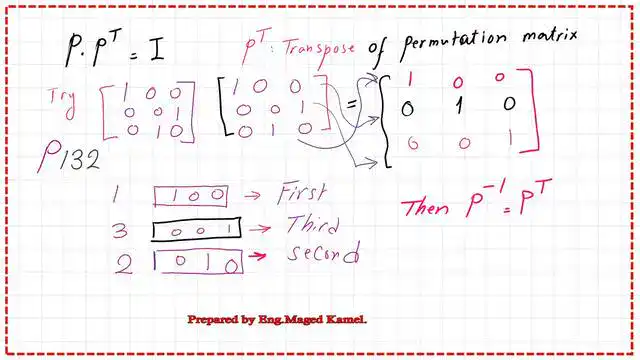 P.Pᵀ = I
Pᵀ: Transpose of permutation matrix
Try [1 0 0] [1 0 0] = [1 0 0]
[0 0 1] [0 0 1] [0 1 0]
[0 1 0] [0 1 0] [0 0 1]
P132
1 1 0 0 → First
3 0 0 1 → Third
2 0 1 0 → second
Then P⁻¹ = Pᵀ
Prepared by Eng.Maged Kamel.